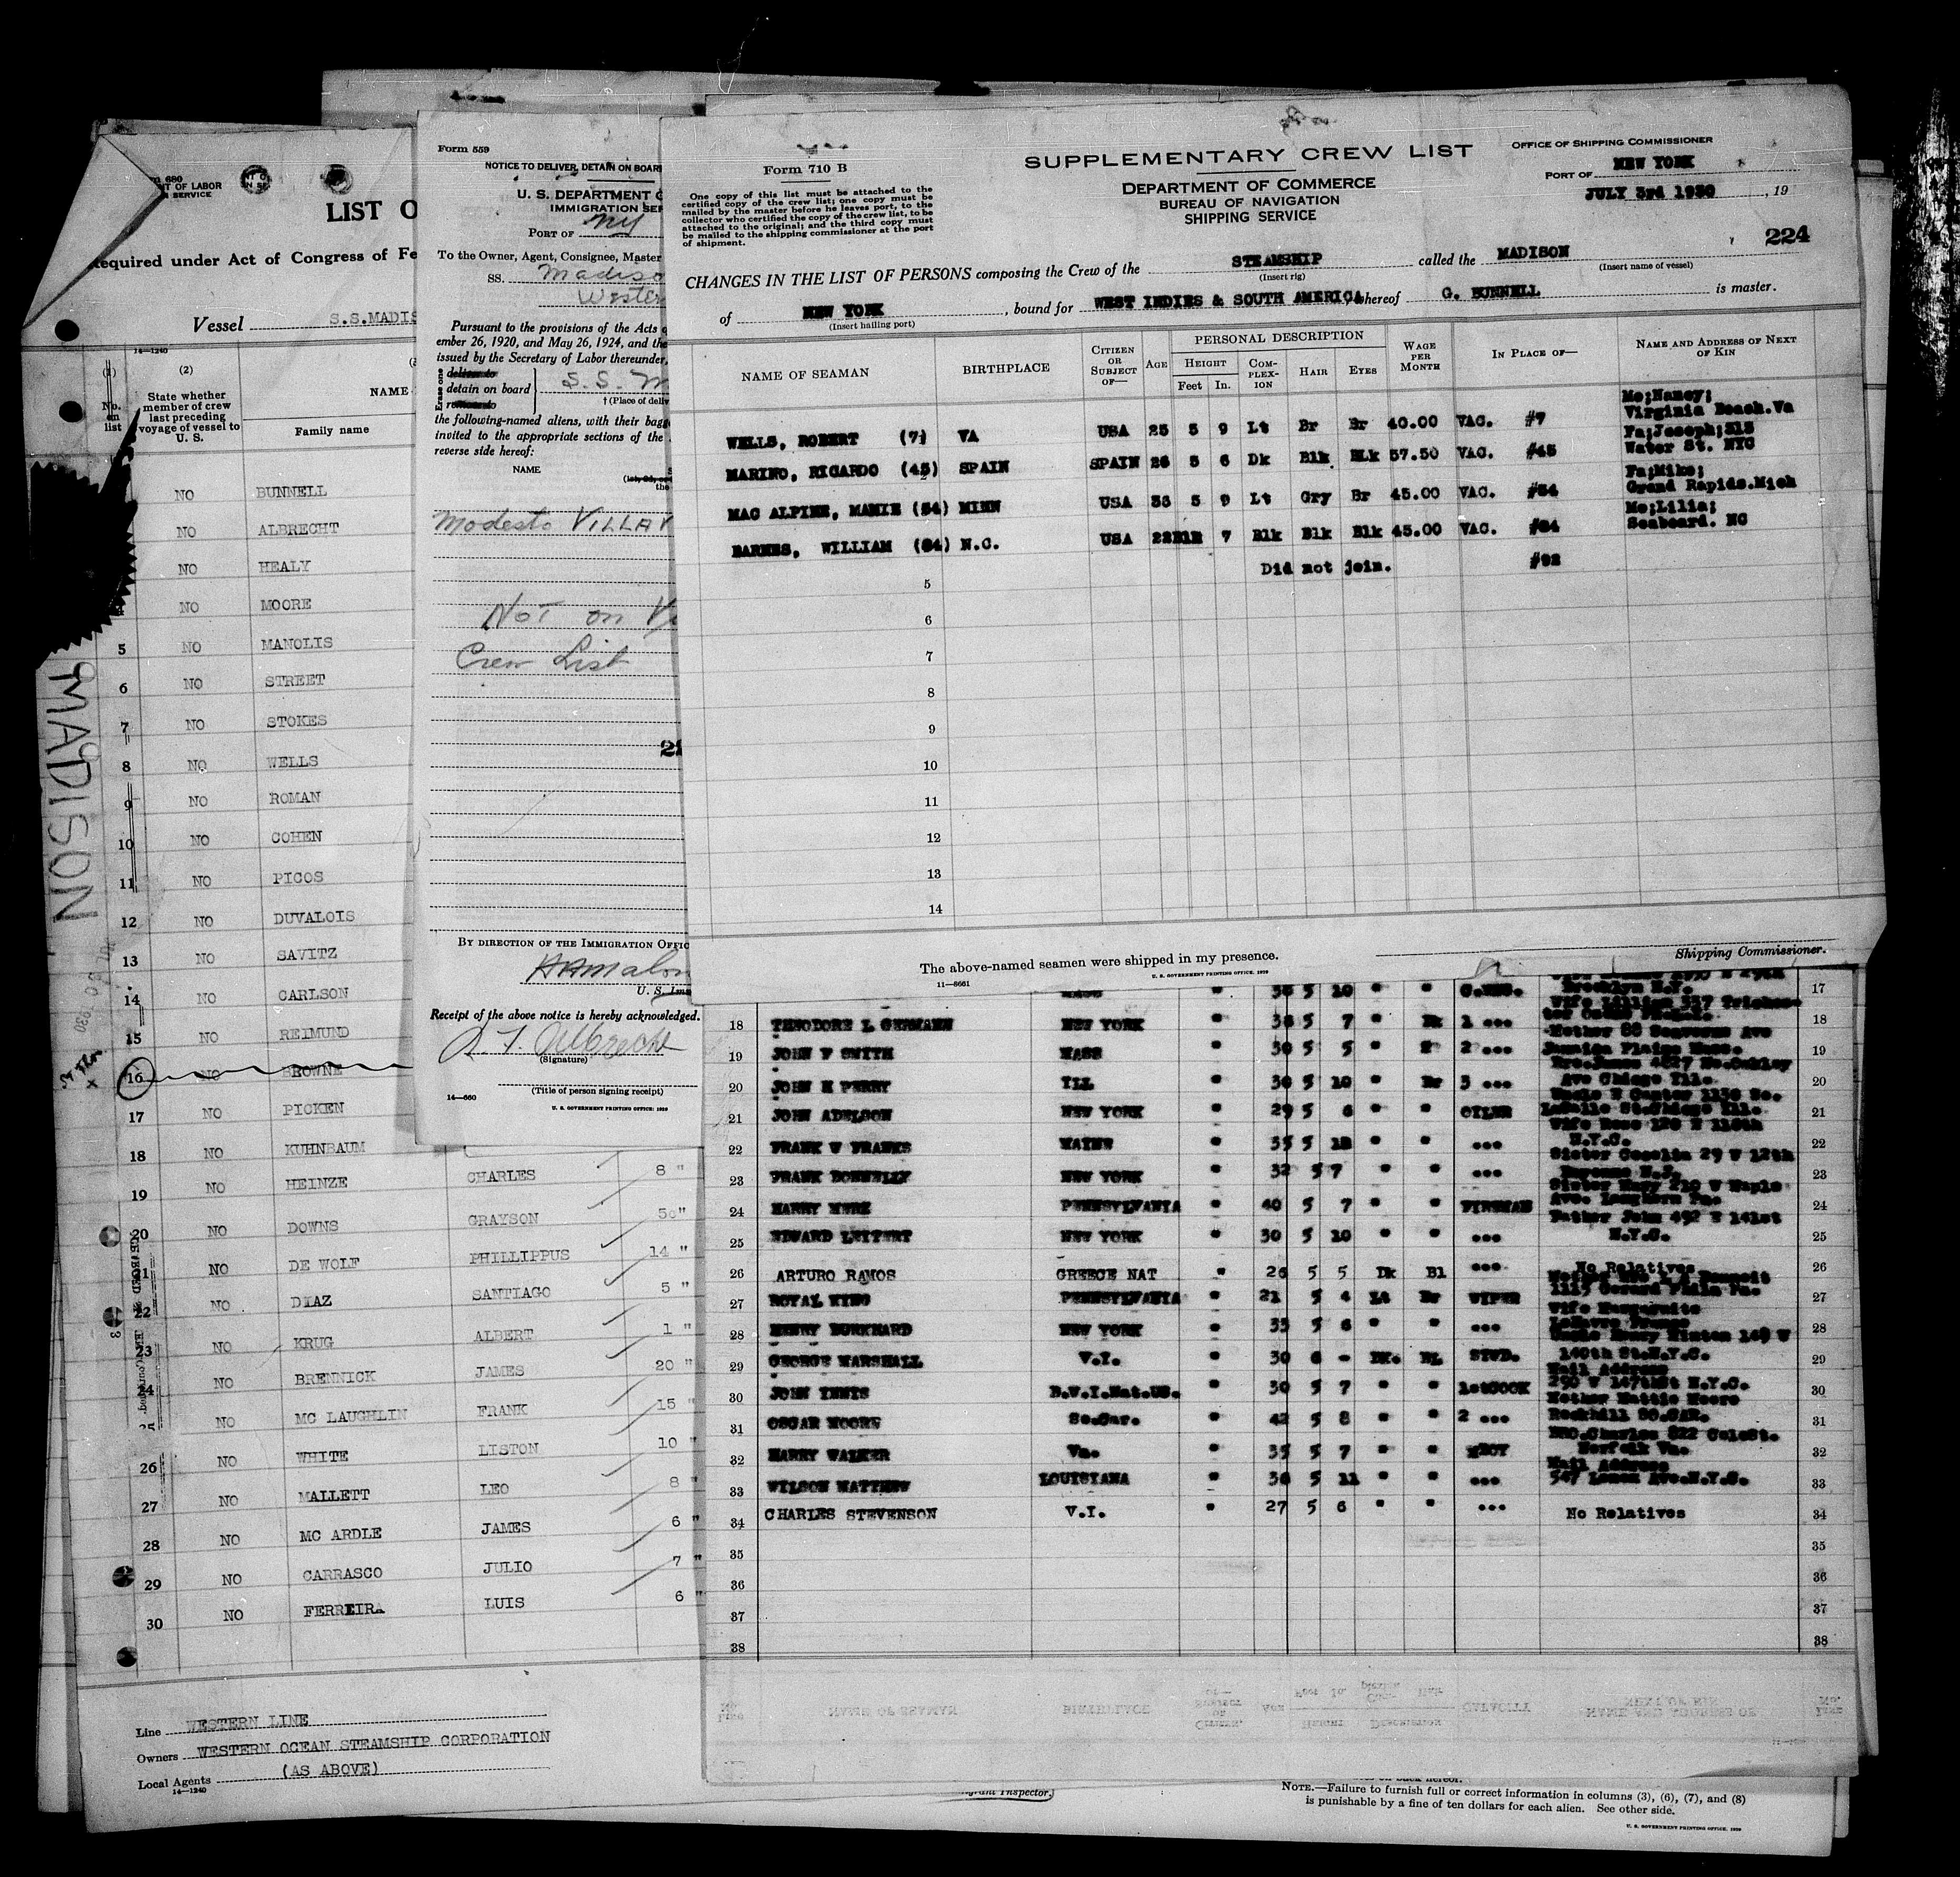 Form 680
LIST O
Required under Act of Congress of Fe
Vessel S.S.MADIS
14—1240
(1) (2)
No. on list
State whether member of crew last preceding voyage of vessel to U. S.
NAME
Family name
NO BUNNELL
NO ALBRECHT
NO HEALY
NO MOORE
5 NO MANOLIS
6 NO STREET
7 NO STOKES
8 NO WELLS
9 NO ROMAN
10 NO COHEN
11 NO PICOS
12 NO DUVALOIS
13 NO SAVITZ
14 NO CARLSON
15 NO REIMUND
16 NO BROWNE
17 NO PICKEN
18 NO KUHNBAUM
19 NO HEINZE CHARLES 8 "
20 NO DOWNS GRAYSON 5o"
21 NO DE WOLF PHILLIPPUS 14 "
22 NO DIAZ SANTIAGO 5 "
23 NO KRUG ALBERT 1 "
24 NO BRENNICK JAMES 20 "
NO MC LAUGHLIN FRANK 15 "
26 NO WHITE LISTON 10 "
27 NO MALLETT LEO 8 "
28 NO MC ARDLE JAMES 6 "
29 NO CARRASCO JULIO 7 "
30 NO FERREIRA LUIS 6 "
MADISON
Line WESTERN LINE
Owners WESTERN OCEAN STEAMSHIP CORPORATION
Local Agents (AS ABOVE)
14—1240
Form 559
NOTICE TO DELIVER, DETAIN ON BOARD
U. S. DEPARTMENT O
IMMIGRATION SER
PORT OF NY
To the Owner, Agent, Consignee, Master
SS. Madiso
Wester
Pursuant to the provisions of the Acts o
ember 26, 1920, and May 26, 1924, and the
issued by the Secretary of Labor thereunder,
Erase one
deliver to
detain on board S. S. M
remove to
† (Place of deliv
the following-named aliens, with their bagg
invited to the appropriate sections of the
reverse side hereof:
NAME
Modesto VILLAV
Not on
Crew List
BY DIRECTION OF THE IMMIGRATION OFFIC
U. S. Imm
Receipt of the above notice is hereby acknowledged.
Albrecht
(Signature)
(Title of person signing receipt)
14—660
U. S. GOVERNMENT PRINTING OFFICE: 1929
Form 710 B
One copy of this list must be attached to the
certified copy of the crew list; one copy must be
mailed by the master before he leaves port, to the
collector who certified the copy of the crew list, to be
attached to the original; and the third copy must
be mailed to the shipping commissioner at the port
of shipment.
SUPPLEMENTARY CREW LIST
DEPARTMENT OF COMMERCE
BUREAU OF NAVIGATION
SHIPPING SERVICE
OFFICE OF SHIPPING COMMISSIONER
PORT OF NEW YORK
JULY 3rd 1930, 19
224
CHANGES IN THE LIST OF PERSONS composing the Crew of the STEAMSHIP called the MADISON
(Insert rig) (Insert name of vessel)
of NEW YORK, bound for WEST INDIES & SOUTH AMERICA whereof G. BUNNELL is master.
(Insert hailing port)
NAME OF SEAMAN BIRTHPLACE CITIZEN OR SUBJECT OF— AGE PERSONAL DESCRIPTION HEIGHT Feet In. COMPLEXION HAIR EYES WAGE PER MONTH IN PLACE OF— NAME AND ADDRESS OF NEXT OF KIN
WELLS, ROBERT (7) VA USA 25 5 9 Lt Br Br 40.00 VAC. #7 Mo;Nancy; Virginia Beach.Va
MARINO, RICARDO (45) SPAIN SPAIN 26 5 6 Dk Blk BLk 57.50 VAC. #45 Fa;Joseph;313 Water St. NYC
MAC ALPINE, MANIE (54) MINN USA 33 5 9 Lt Gry Br 45.00 VAC. #54 Fa;Mike; Grand Rapids.Mich
BARNES, WILLIAM (84) N.C. USA 22 7 Blk Blk Blk 45.00 VAC. #84 Mo;Lilia; Seaboard. NC
Did not join. #92
5
6
7
8
9
10
11
12
13
14
The above-named seamen were shipped in my presence.
Shipping Commissioner.
11—8661
U. S. GOVERNMENT PRINTING OFFICE. 1929
10 Brooklyn N.Y. 17
18 THEODORE L GERMANN NEW YORK " 5 7 " 18
19 JOHN F SMITH MASS " 5 5 " 2 ... 19
20 JOHN H PERRY ILL " 30 5 10 " Br 3 ... 20
21 JOHN ADELSON NEW YORK " 29 5 6 " " OILER 21
22 FRANK W FRANKS MAINE " 35 5 " " ... N.Y.C. 22
23 FRANK DONNELLY NEW YORK " 32 5 7 " " ... 23
24 HARRY PENNSYLVANIA " 40 5 7 " " FIREMAN 24
25 EDWARD NEW YORK " 30 5 10 " " ... N.Y.C. 25
26 ARTURO RAMOS GREECE NAT " 26 5 5 Dk Bl ... No Relatives 26
27 ROYAL KING PENNSYLVANIA " 21 5 4 Lt Br WIPER 27
28 HENRY BURKHARD NEW YORK " 35 5 6 " " ... 28
29 GEORGE MARSHALL V.I. " 30 6 - DK. BL STWD. 140th St.N.Y.C. 29
30 JOHN INNIS B.W.I.Nat.US. " 30 5 7 " " 1stCOOK 30
31 OSCAR MOORE So.Car. " 42 5 8 " " 2 ... 31
32 HARRY WALKER Va. " 35 5 7 " " Norfolk Va. 32
33 WILSON MATTHEW LOUISIANA " 36 5 11 " " ... 547 Lenox Ave.N.Y.C. 33
34 CHARLES STEVENSON V.I. " 27 5 6 " " ... No Relatives 34
35 35
36 36
37 37
38 38
grant Inspector.
NOTE.—Failure to furnish full or correct information in columns (3), (6), (7), and (8)
is punishable by a fine of ten dollars for each alien. See other side.
U. S. GOVERNMENT PRINTING OFFICE. 1929